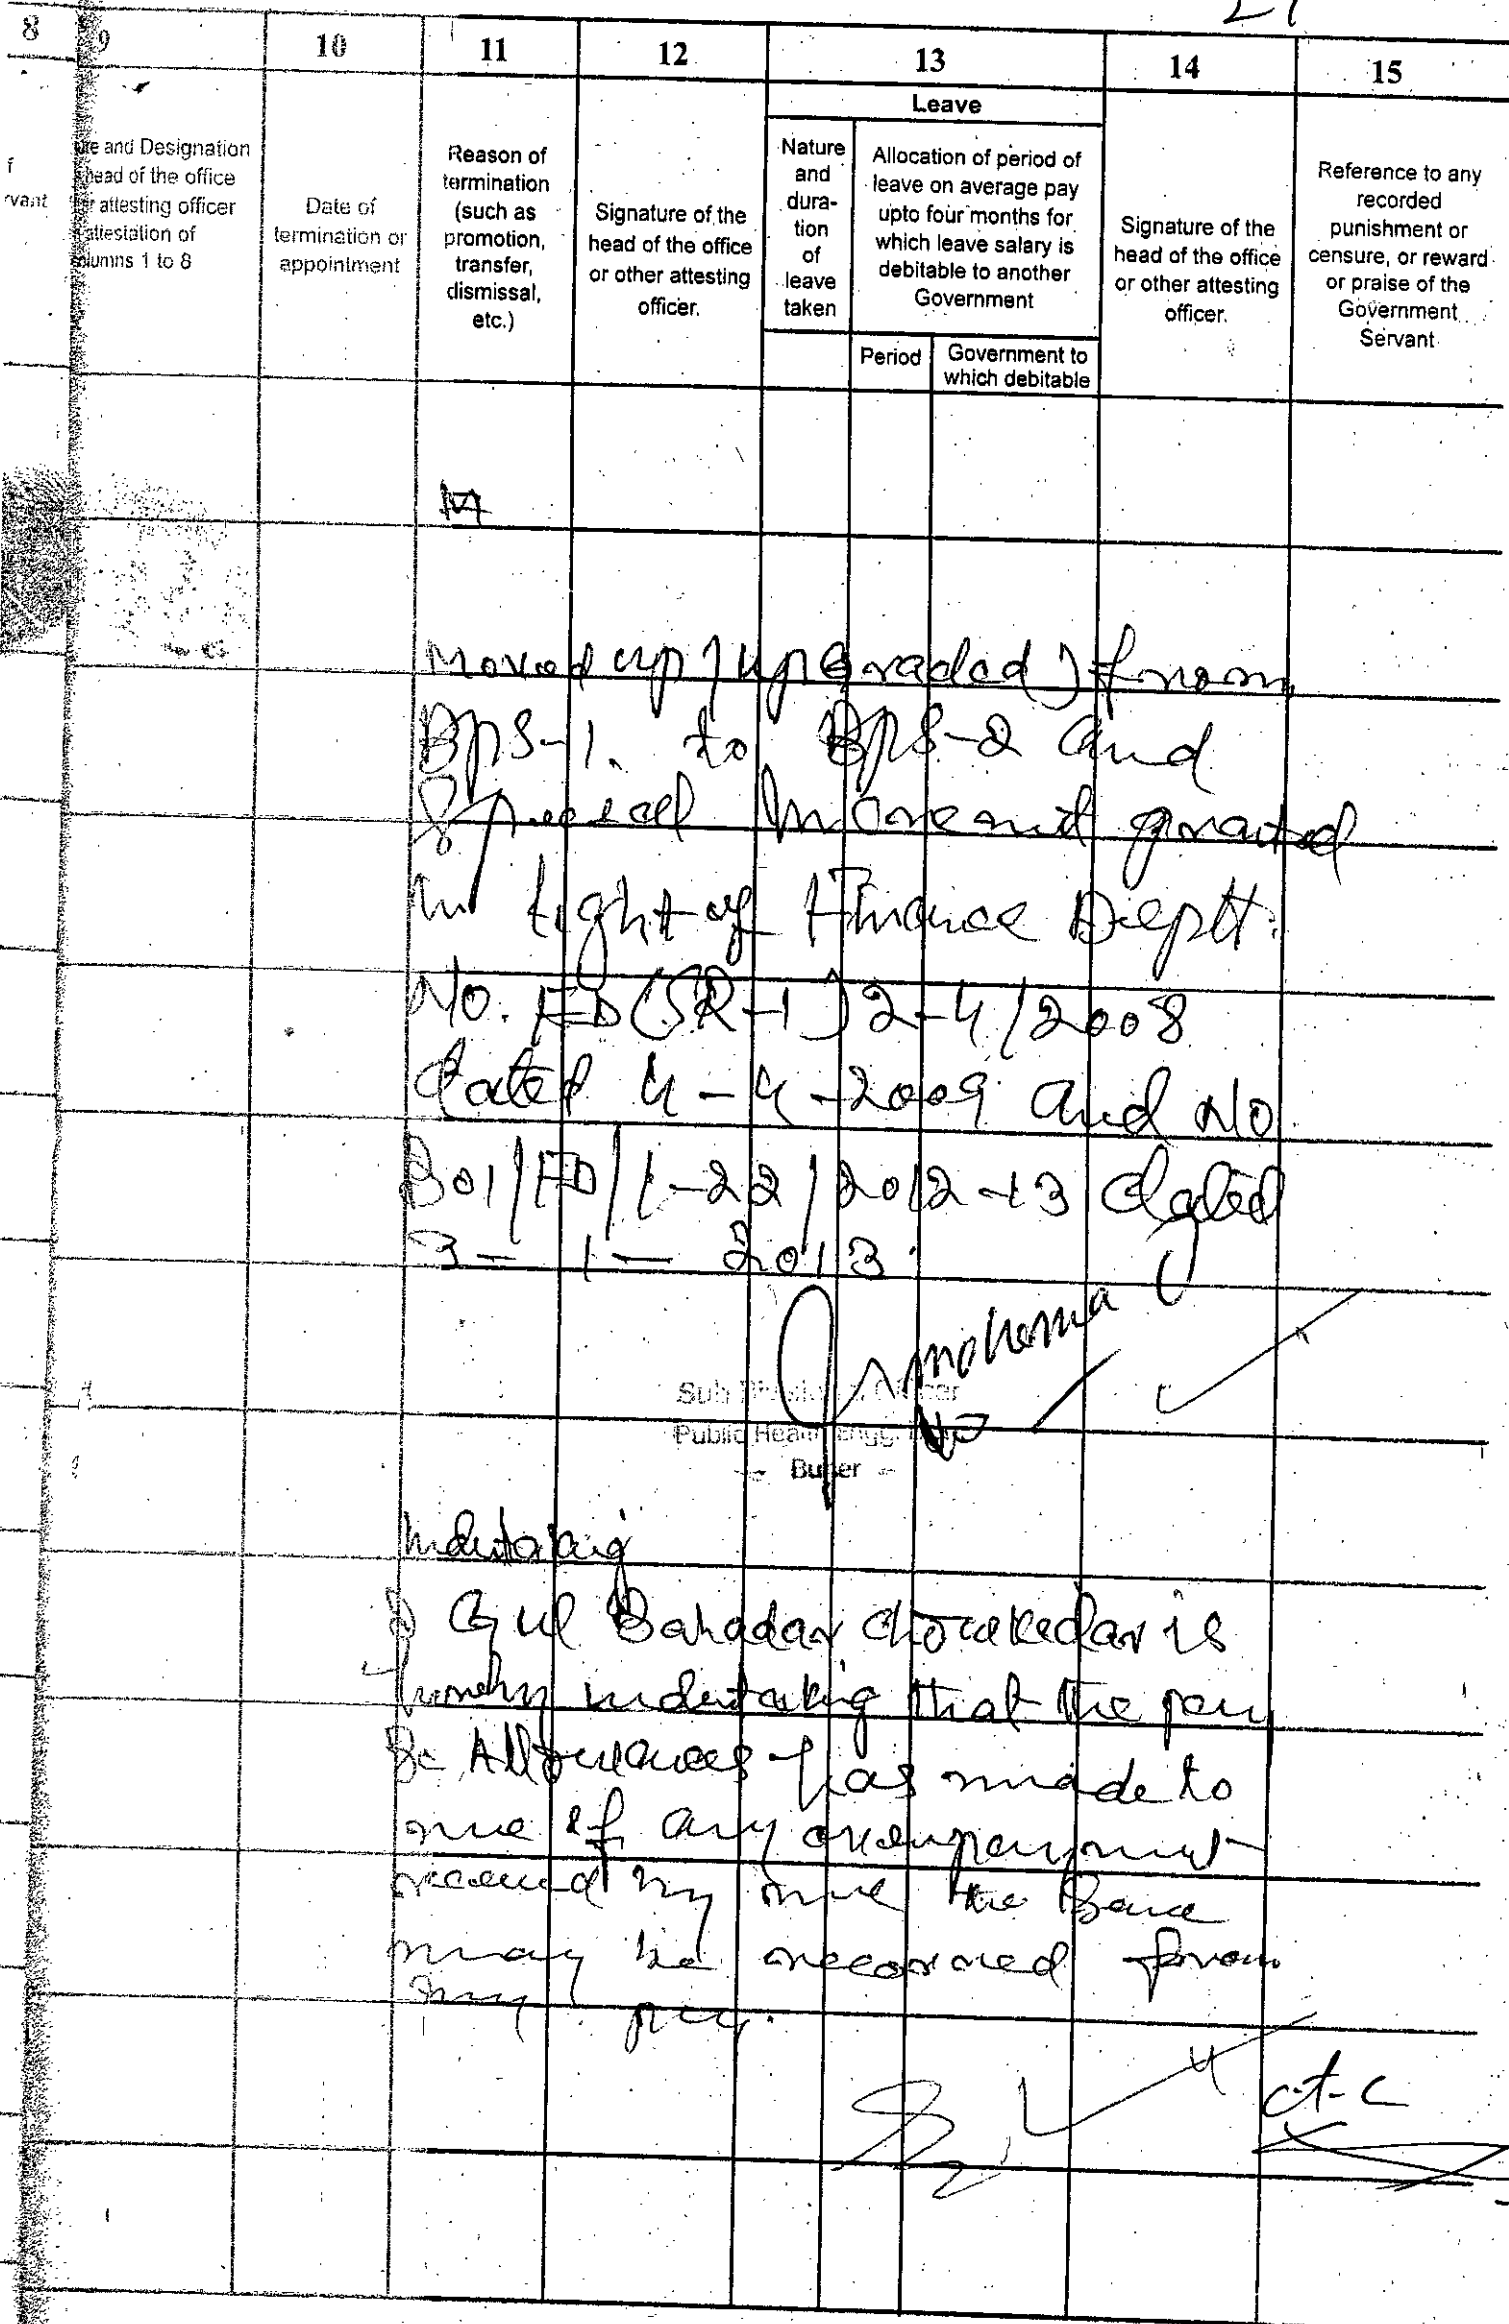 21
8 9 10 11 12 13 14 15
Leave
f
rvant
re and Designation
head of the office
r attesting officer
attestation of
lumns 1 to 8
Date of
termination or
appointment
Reason of
termination
(such as
promotion,
transfer,
dismissal,
etc.)
Signature of the
head of the office
or other attesting
officer.
Nature
and
dura-
tion
of
leave
taken
Allocation of period of
leave on average pay
upto four months for
which leave salary is
debitable to another
Government
Period
Government to
which debitable
Signature of the
head of the office
or other attesting
officer.
Reference to any
recorded
punishment or
censure, or reward
or praise of the
Government
Servant
Moved up (upgraded) from
BPS-1. to BPS-2 and
Special Increment granted
In light of Finance Deptt:
No. FD(SR-1)2-4/2008
dated 4-4-2009 and No
BOI/FD/1-22/2012-13 dated
3-1-2013.
Sub Divisional Officer
Public Health Engg:
Buner
Undertaking
I Gul Bahadar Chowkedar is
hereby undertaking that the pay
& Allowances has made to
me if any overpayment
received by me the Same
may be recovered from
my pay.